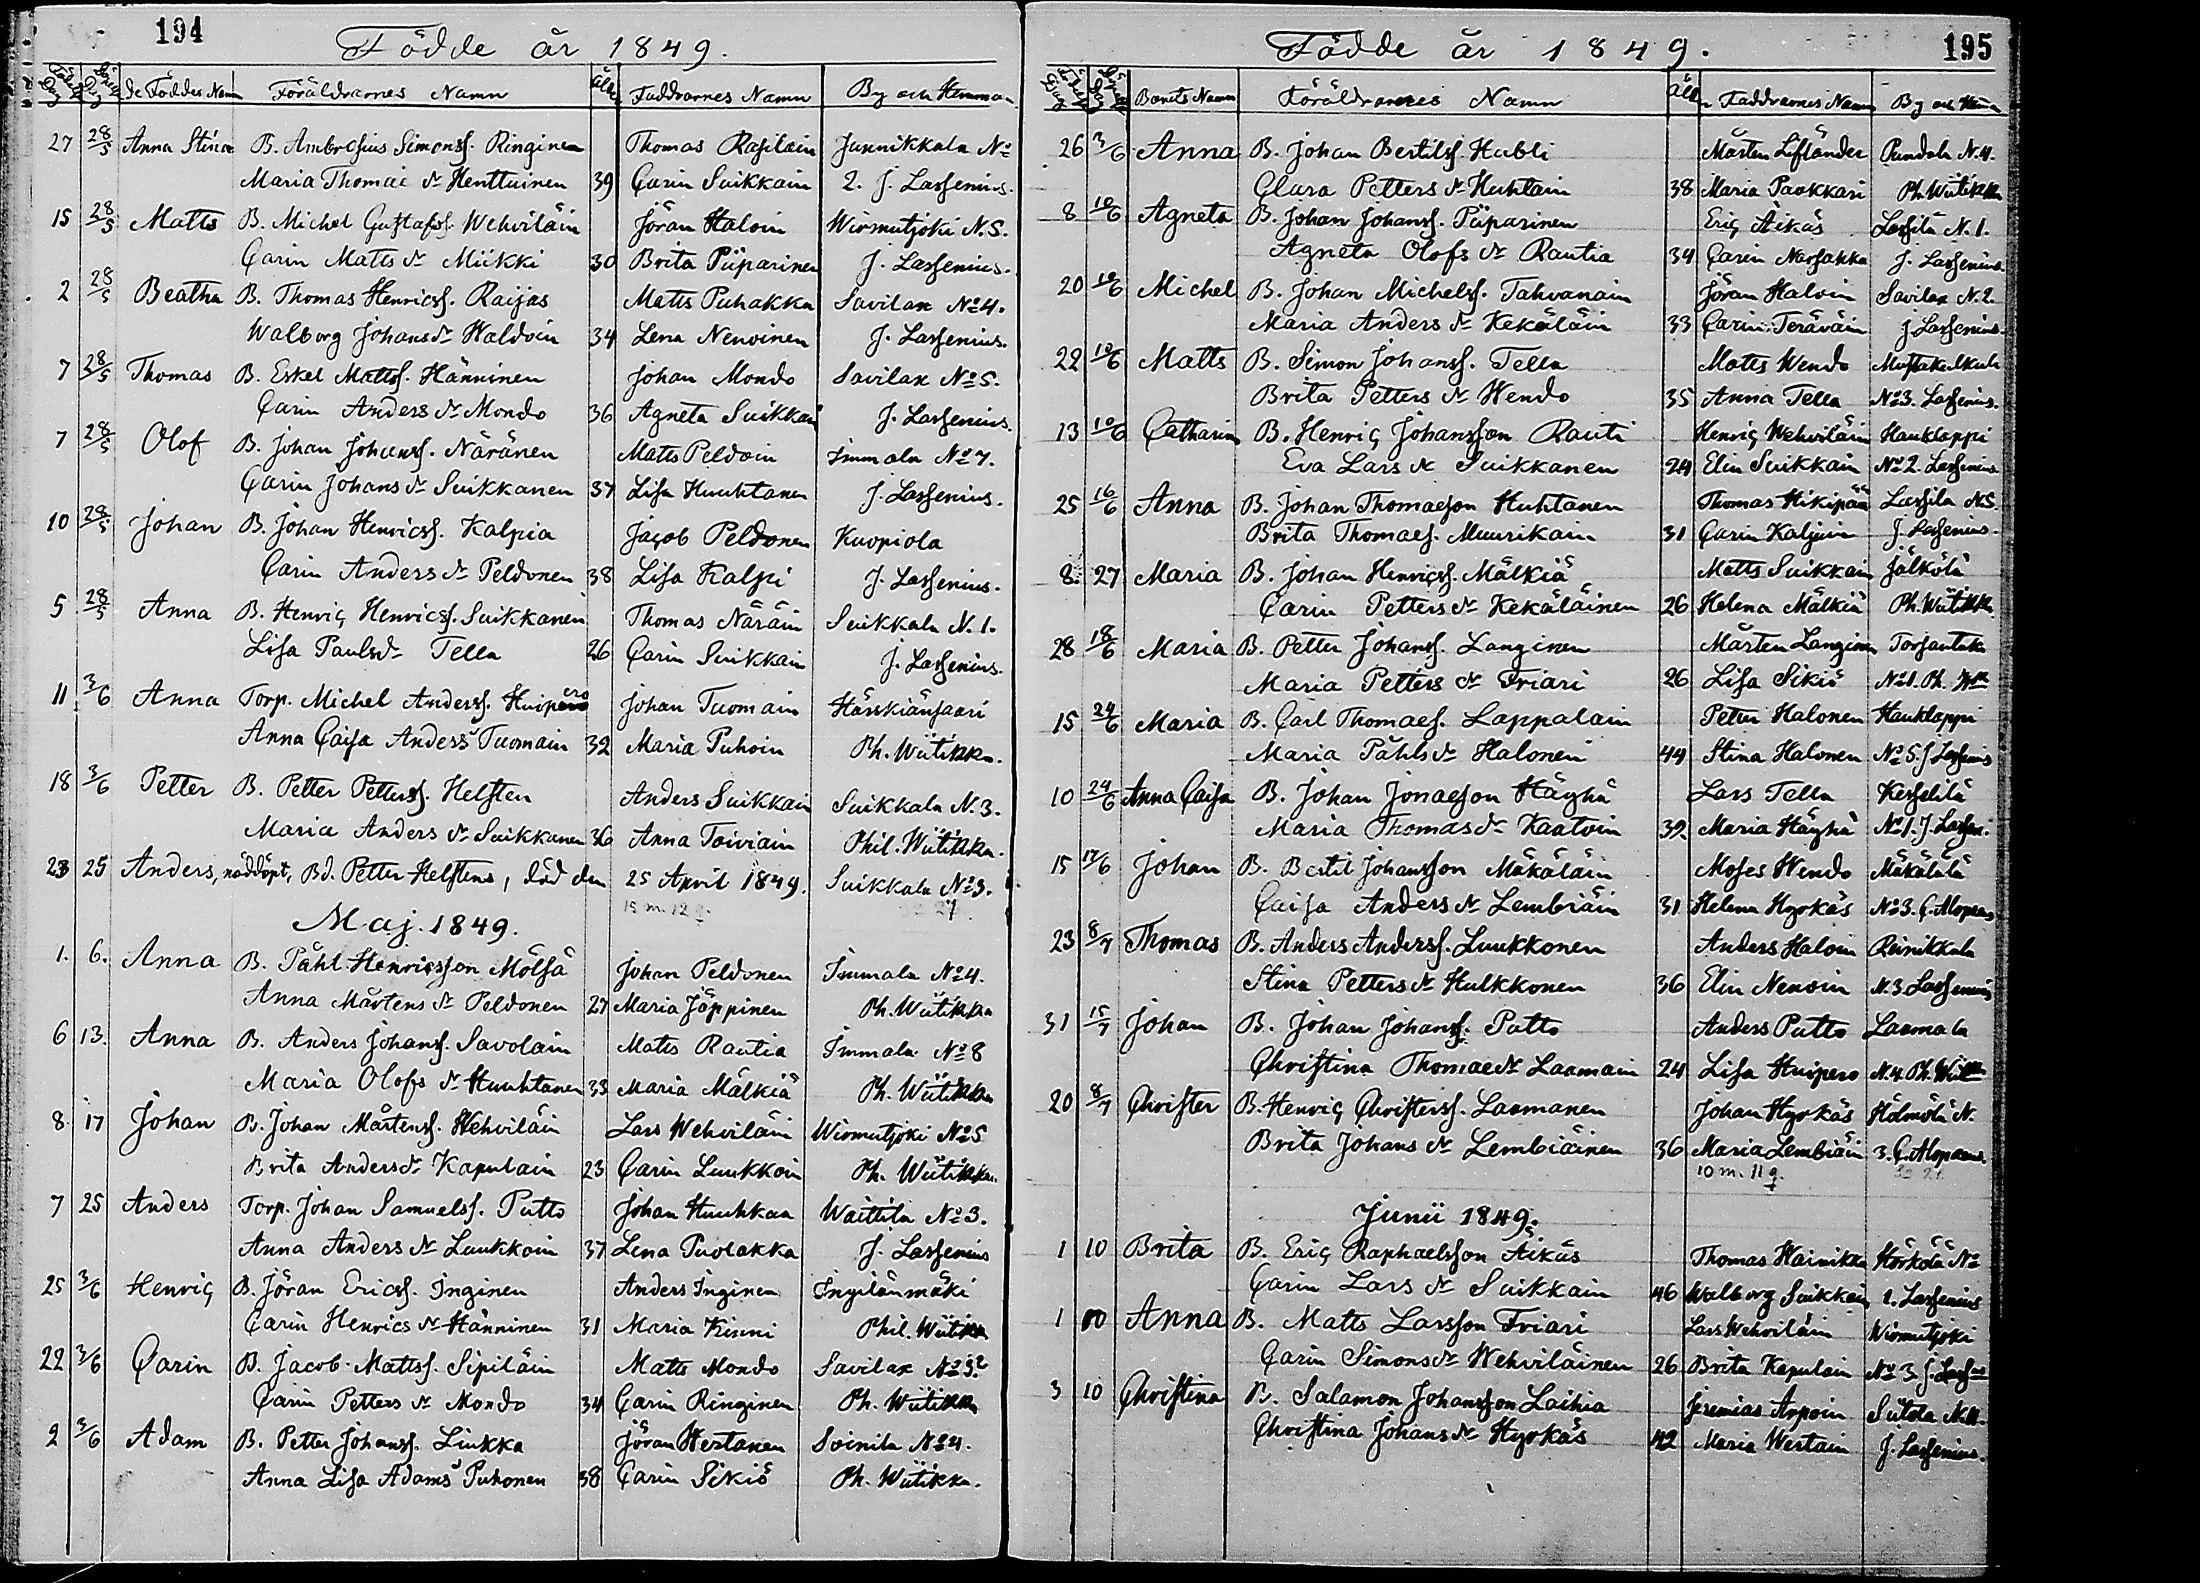 194
Födde år 1849.
De Föddes Namn Föräldrarnes Namn Faddrarnes Namn By och Hemman
27 28/5 Anna Stina B. Ambrosius Simonss. Ringinen Thomas Rasilain Junnikkala No
Maria Thomae dr Henttuinen 39 Carin Suikkain 2. J. Lassenius.
15 28/5 Matts B. Michel Gustafss. Wehviläin Jöran Haloin Wirmutjoki N.5.
Carin Matts dr Miikki 30 Brita Piiparinen J. Lassenius.
2 28/5 Beatha B. Thomas Henricss. Raijas Matts Puhakka Savilax No 4.
Walborg Johans dr Waldoin 34 Lena Nenoinen J. Lassenius.
7 28/5 Thomas B. Eskel Mattss. Hänninen Johan Mondo Savilax No 5.
Carin Anders dr Mondo 36 Agneta Suikkain J. Lassenius.
7 28/5 Olof B. Johan Johanss. Näränen Matts Peldoin Immala No 7.
Carin Johans dr Suikkanen 37 Lisa Huuhtanen J. Lassenius.
10 28/5 Johan B. Johan Henricss. Kalpia Jacob Peldonen Kuopiola
Carin Anders dr Peldonen 38 Lisa Kalpi J. Lassenius.
5 28/5 Anna B. Henric Henricss. Suikkanen Thomas Näräin Suikkala N. 1.
Lisa Pauls dr Tella 26 Carin Suikkain J. Lassenius.
11 3/6 Anna Torp. Michel Anderss. Huipero Johan Tuomain Härskiänsaari
Anna Caisa Anders Tuomain 32 Maria Puhoin Ph. Wiitikka.
18 3/6 Petter B. Petter Petterss. Helsten Anders Suikkain Suikkala N. 3.
Maria Anders dr Suikkanen 36 Anna Toiviain Phil. Wiitikka.
23 25 Anders, nöddöpt, Bd. Petter Helstens, död den 25 April 1849. Suikkala No 3.
15 m. 12 q. 27
Maj. 1849.
1. 6. Anna B. Påhl Henricsson Mölsä Johan Peldonen Immala No 4.
Anna Mårtens dr Peldonen 27 Maria Jäppinen Ph. Wiitikka
6 13. Anna B. Anders Johanss. Savolain Matts Rautia Immala No 8
Maria Olofs dr Huuhtanen 33 Maria Mälkiä Ph. Wiitikka
8. 17 Johan B. Johan Mårtenss. Wehviläin Lars Wehviläin Wirmutjoki No 5
Brita Anders dr Kapulain 23 Carin Luukkoin Ph. Wiitikka.
7 25 Anders Torp. Johan Samuelss. Putto Johan Huuhkaa Waittila No 3.
Anna Anders dr Luukkoin 37 Lena Puolakka J. Lassenius
25 3/6 Henric B. Jöran Ericss. Inginen Anders Inginen Ingilänmäki
Carin Henrics dr Hänninen 31 Maria Kinni Phil. Wiitikka
22 3/6 Carin B. Jacob Mattss. Sipiläin Matts Mondo Savilax No
Carin Petters dr Mondo 34 Carin Ringinen Ph. Wiitikka
2 3/6 Adam B. Petter Johanss. Liukka Jöran Hertanen Soinila No 4.
Anna Lisa Adams Puhonen 38 Carin Sikiö Ph. Wiitikka.
195
Födde år 1849.
Barnets Namn Föräldrarnes Namn Faddrarnes Namn By och
26 3/6 Anna B. Johan Bertilss. Hubli Mårten Lifländer Pundola N.4.
Clara Petters dr Huhtain 38 Maria Paakkari Ph. Wiitikka
8 10/6 Agneta B. Johan Johanss. Piiparinen Eric Äikäs Lassila N. 1.
Agneta Olofs dr Rautia 34 Carin Narsakka J. Lassenius
20 10/6 Michel B. Johan Michelss. Tahvanain Jöran Haloin Savilax N. 2.
Maria Anders dr Kekäläin 33 Carin Teräväin J. Lassenius.
22 10/6 Matts B. Simon Johanss. Tella Matts Wendo
Brita Petters dr Wendo 35 Anna Tella No 3. Lassenius.
13 10/6 Catharina B. Henric Johansson Rauti Henric Wehviläin Hauklappi
Eva Lars dr Suikkanen 24 Elin Suikkain No 2 Lassenius.
25 16/6 Anna B. Johan Thomaeson Huhtanen Thomas Hikipää Lassila N.5.
Brita Thomaes. Muurikain 31 Carin Kaljuin J. Lassenius.
8. 27 Maria B. Johan Henricss. Mälkiä Matts Suikkain Jälkölä
Carin Petters dr Kekäläinen 26 Helena Mälkiä Ph. Wiitikka
28 18/6 Maria B. Petter Johanss. Langinen Mårten Langinen Torsantaka
Maria Petters dr Friari 26 Lisa Sikiö No 1. Ph. Wiit
15 24/6 Maria B. Carl Thomaes. Lappalain Petter Halonen Hauklappi
Maria Påhls dr Halonen 44 Stina Halonen No 5. J Lassenius
10 24/6 Anna Caisa B. Johan Jonaeson Häyhä Lars Tella Kesselilä
Maria Thomas dr Kaatoin 39. Maria Häyhä No 1. J. Lassen.
15 17/6 Johan B. Bertil Johansson Mäkäläin Moses Wendo Mäkälälä
Caisa Anders dr Lembiäin 31 Helena Hyrkäs No 3. C. Alopaeus
23 8/7 Thomas B. Anders Anderss. Luukkonen Anders Haloin Reinikkala
Stina Petters dr Hulkkonen 36 Elin Nenoin N. 3 Lassenius
31 15/7 Johan B. Johan Johanss. Putto Anders Putto Laamala
Christina Thomae dr Laamain 24 Lisa Huipero N.4. Ph. Wiit
20 8/7 Christer B. Henric Christerss. Laamanen Johan Hyrkäs Hälmölä N.
Brita Johans dr Lembiäinen 36 Maria Lembiäin 3. C. Alopaeus.
10 m. 11 q.
Junii 1849.
1 10 Brita B. Eric Raphaelsson Äikäs Thomas Hainikka Härkölä No
Carin Lars dr Suikkain 46 Walborg Suikkain 1. Lassenius
1 10 Anna B. Matts Larsson Friari Lars Wehviläin Wirmutjoki
Carin Simons dr Wehviläinen 26 Brita Kapulain No 3. J. Lassenius
3 10 Christina B. Salamon Johansson Laihia Jeremias Arpoin Siitola
Christina Johans dr Hyrkäs 42 Maria Wertain J. Lassenius.